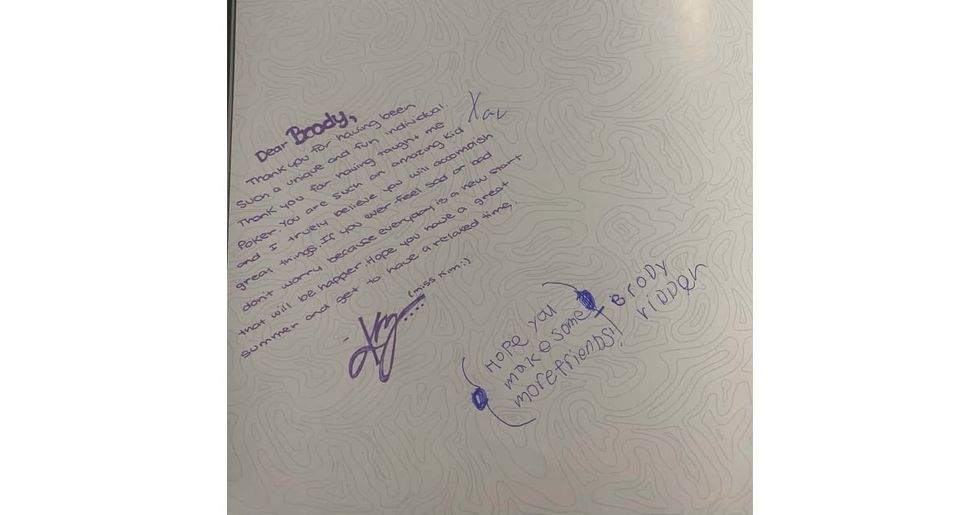 Dear Brody,
Thank you for having been
such a unique and fun individual.
Thank you for having taught me
Poker. You are such an amazing kid
and I truely believe you will accomplish
great things. If you ever feel sad or bad
don't worry because everyday is a new start
that will be happier. Hope you have a great
summer and get to have a relaxed time.
(miss Kim :)
Xav
HOPE you
make some
more friends!
- BRODY
RIDDER